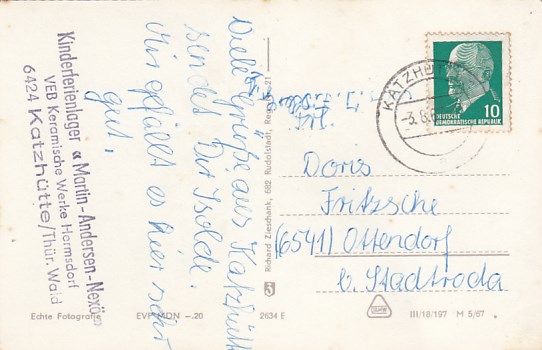 Kinderferienlager « Martin-Andersen-Nexö »
VEB Keramische Werke Hermsdorf
6424 Katzhütte/Thür. Wald
Viele Grüße aus Katzhütte
sendet Dir Isolde.
Mir gefällt es hier sehr
gut.
Echte Fotografie
EVP MDN -.20
2634 E
Richard Zieschank, 682 Rudolstadt,
KATZHÜT
-3.8.
10
DEUTSCHE
DEMOKRATISCHE REPUBLIK
Doris
Fritzsche
(6541) Ottendorf
b. Stadtroda
III/18/197 M 5/67